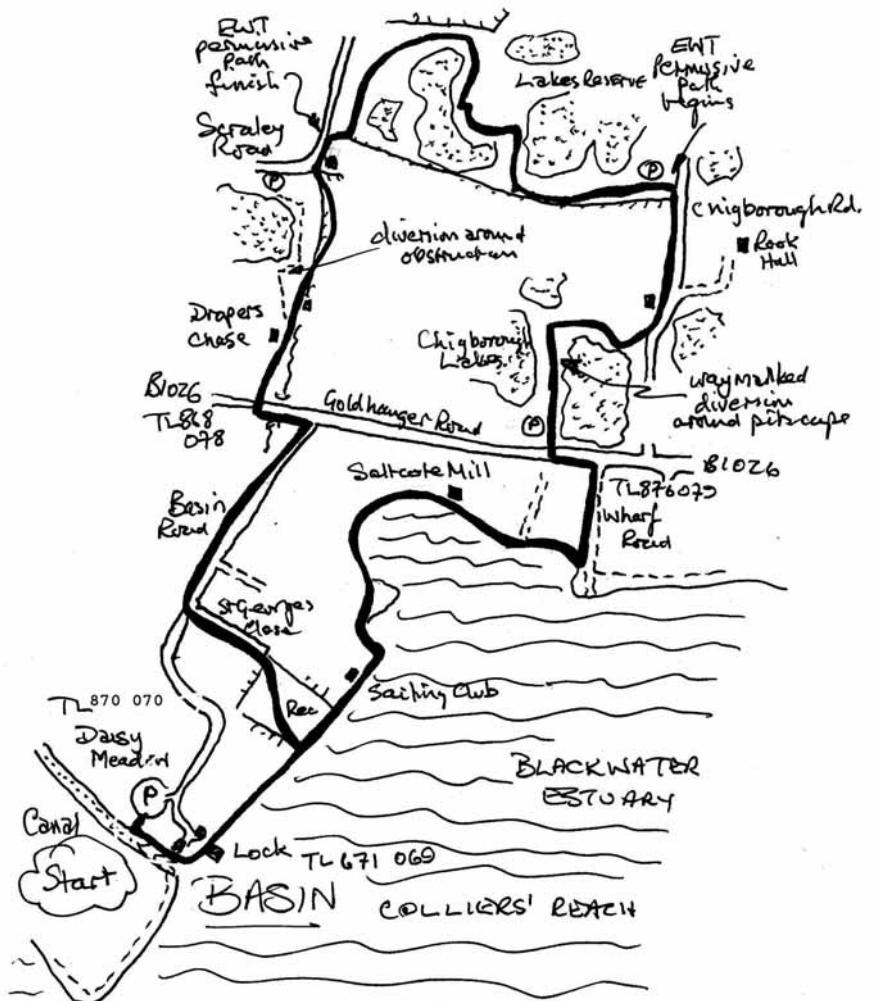 EWT
permissive
Path
finish
Scraley
Road
Lakes Reserve
EWT
Permissive
Path
begins
P
P
Chigborough Rd.
Rook
Hall
diversion around
obstruction
Drapers
Chase
Chigborough
Lakes
waymarked
diversion
around pitscape
B1026
TL868
078
Goldhanger Road
P
B1026
TL876079
Wharf
Road
Saltcote Mill
Basin
Road
St Georges
Close
Rec
Sailing Club
TL 870 070
Daisy
Meadow
P
BLACKWATER
ESTUARY
Canal
Start
Lock TL 671 069
BASIN
COLLIERS' REACH